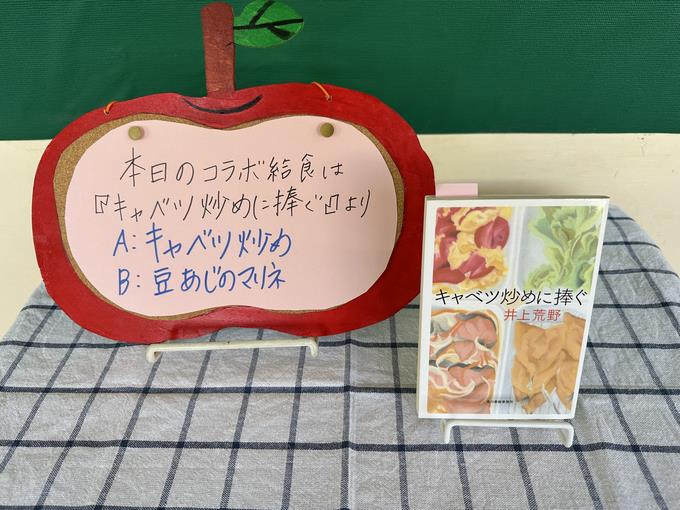 本日のコラボ給食は
『キャベツ炒めに捧ぐ』より
A:キャベツ炒め
B:豆あじのマリネ
キャベツ炒めに捧ぐ
井上荒野